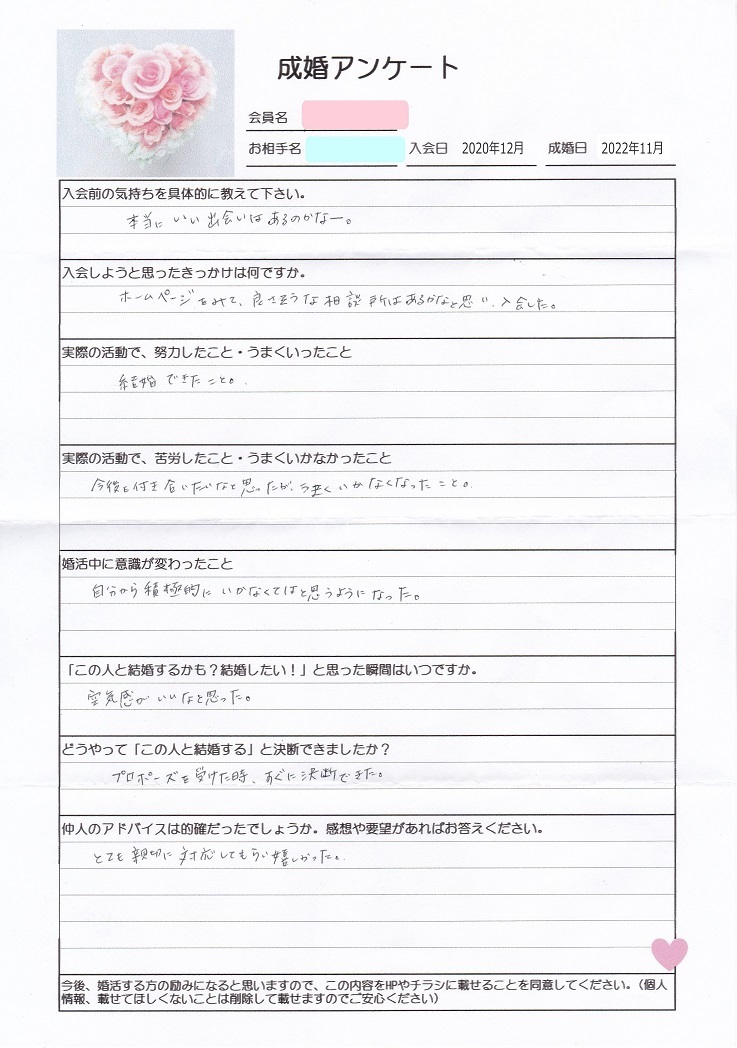 成婚アンケート
会員名
お相手名 入会日 2020年12月 成婚日 2022年11月
入会前の気持ちを具体的に教えて下さい。
本当にいい出会いはあるのかなー。
入会しようと思ったきっかけは何ですか。
ホームページをみて、良さそうな相談所はあるかなと思い、入会した。
実際の活動で、努力したこと・うまくいったこと
結婚できたこと。
実際の活動で、苦労したこと・うまくいかなかったこと
今後も付き合いたいなと思ったが、上手くいかなくなったこと。
婚活中に意識が変わったこと
自分から積極的にいかなくてはと思うようになった。
「この人と結婚するかも?結婚したい!」と思った瞬間はいつですか。
空気感がいいなと思った。
どうやって「この人と結婚する」と決断できましたか?
プロポーズを受けた時、すぐに決断できた。
仲人のアドバイスは的確だったでしょうか。感想や要望があればお答えください。
とても親切に対応してもらい嬉しかった。
今後、婚活する方の励みになると思いますので、この内容をHPやチラシに載せることを同意してください。(個人
情報、載せてほしくないことは削除して載せますのでご安心ください)